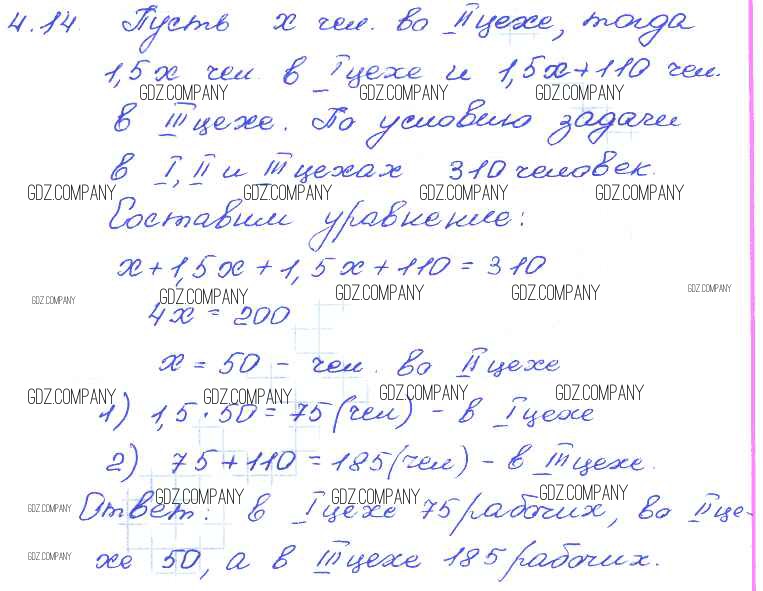 4.14 Пусть x чел. во II цехе, тогда
1,5x чел. в I цехе и 1,5x+110 чел.
GDZ.COMPANY GDZ.COMPANY GDZ.COMPANY
в III цехе. По условию задачи
в I, II и III цехах 310 человек.
GDZ.COMPANY GDZ.COMPANY GDZ.COMPANY GDZ.COMPANY
Составим уравнение:
x+1,5x+1,5x+110=310
GDZ.COMPANY GDZ.COMPANY GDZ.COMPANY GDZ.COMPANY GDZ.COMPANY
4x = 200
x = 50 – чел. во II цехе
GDZ.COMPANY GDZ.COMPANY GDZ.COMPANY GDZ.COMPANY
1) 1,5·50=75(чел) – в I цехе
2) 75+110=185(чел) – в III цехе.
GDZ.COMPANY GDZ.COMPANY GDZ.COMPANY GDZ.COMPANY
Ответ: в I цехе 75 рабочих, во II це-
хе 50, а в III цехе 185 рабочих.
GDZ.COMPANY